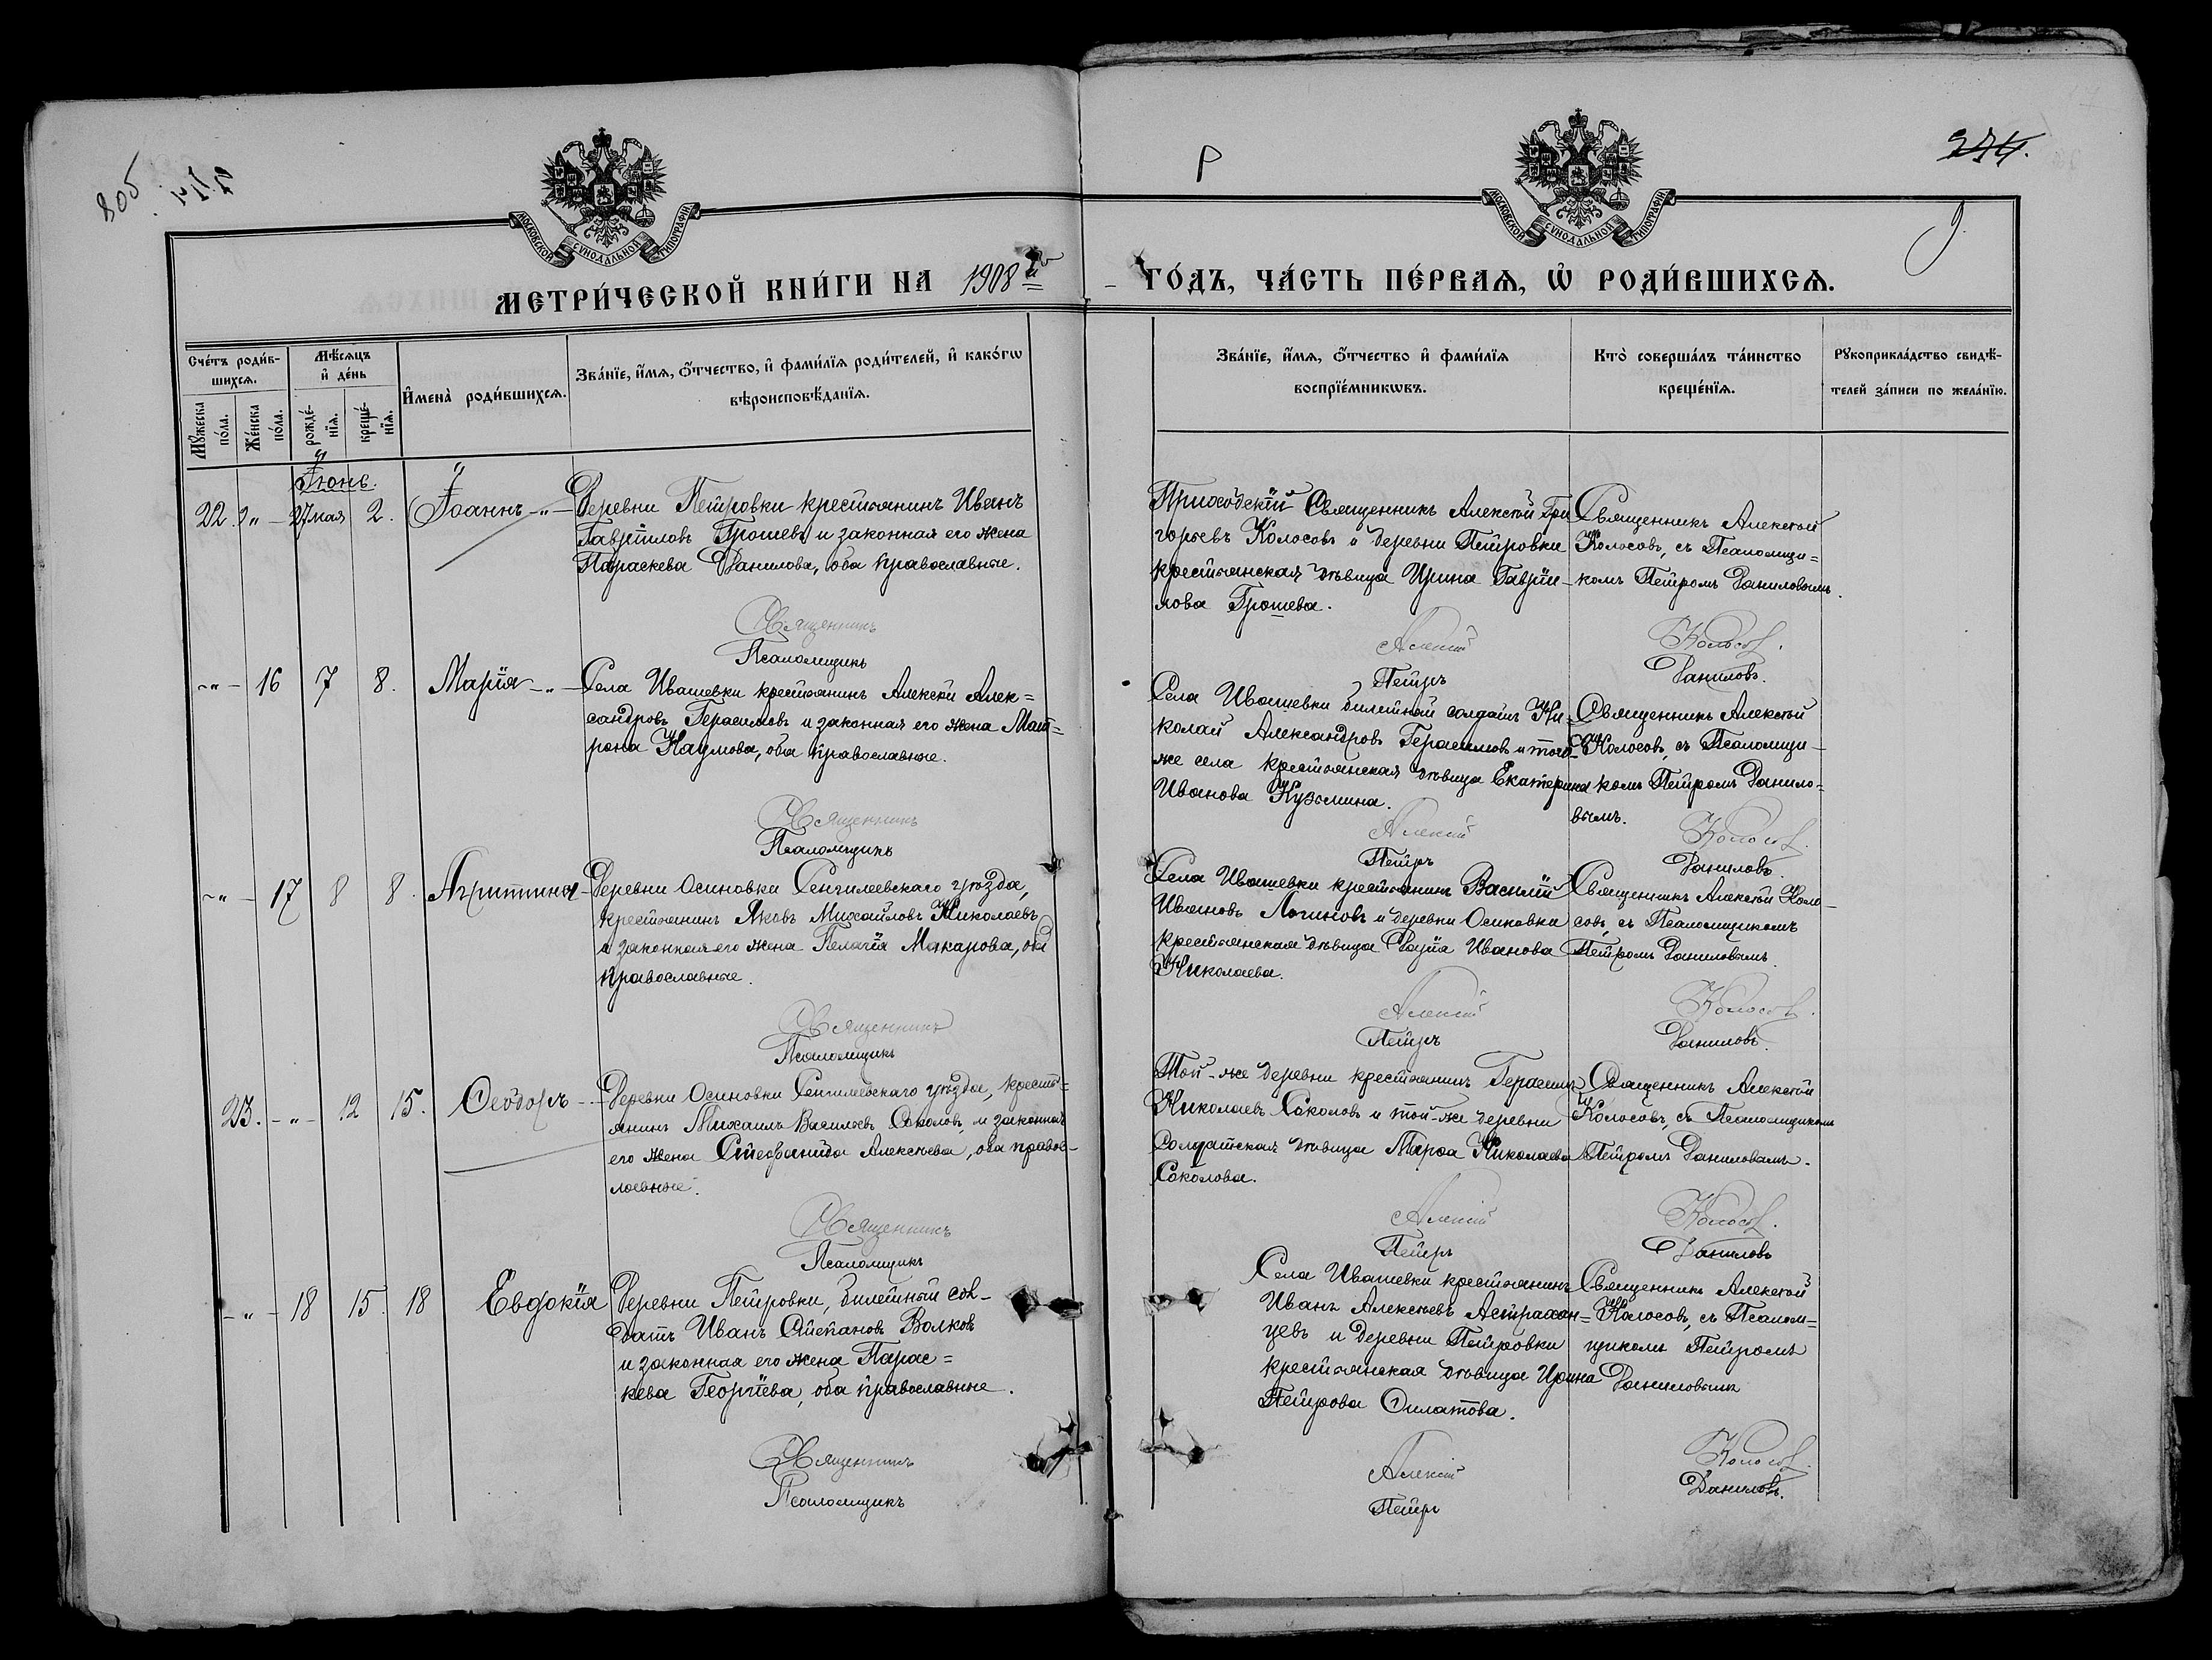 805
274.
Р
9
МОСКОВСКОЙ СѴНОДАЛЬНОЙ ТИПОГРАФІИ
МОСКОВСКОЙ СѴНОДАЛЬНОЙ ТИПОГРАФІИ
МЕТРИ́ЧЕСКОЙ КНИ́ГИ НА 1908й
ГО́ДЪ, ЧА́СТЬ ПЕ́РВАѦ, Ѡ҆ РОДИ́ВШИХСѦ.
Сче́тъ роди́в-
шихсѧ.
Мꙋ́жеска по́ла.
Же́нска по́ла.
Мѣ́сѧцъ
и҆ де́нь
рожде́-
нїѧ.
креще́-
нїѧ.
И҆мена̀ роди́вшихсѧ.
Зва́нїе, и҆́мѧ, ѻ҆́тчество, и҆ фами́лїѧ роди́телей, и҆ како́гѡ
вѣроисповѣ́данїѧ.
Зва́нїе, и҆́мѧ, ѻ҆́тчество и҆ фами́лїѧ
воспрїе́мникѡвъ.
Кто̀ соверша́лъ та́инство
креще́нїѧ.
Рꙋкоприкла́дство свидѣ́-
телей за́писи по жела́нїю.
Іюнь.
22. „ 27 мая 2. Іоаннъ
Деревни Петровки крестьянинъ Иванъ
Гавріиловъ Грошевъ и законная его жена
Параскева Данилова, оба православные.
Священникъ
Псаломщикъ
Приходскій Священникъ Алексѣй Гри
горьевъ Колосовъ и деревни Петровки
крестьянская дѣвица Ирина Гавріи-
лова Грошева.
Алексій
Петръ
Священникъ Алексѣй
Колосовъ, съ Псаломщи=
комъ Петромъ Даниловымъ.
Колосов.
Даниловъ.
-„- 16 7 8. Марія -„-
Села Ивашевки крестьянинъ Алексѣй Алек=
сандровъ Герасимовъ и законная его жена Мат=
рона Наумова, оба православные.
Священникъ
Псаломщикъ
Села Ивашевки билетный солдатъ Ни=
колай Александровъ Герасимовъ и того-
же села крестьянская дѣвица Екатерина
Иванова Кузьмина.
Алексій
Петръ
Священникъ Алексѣй
Колосовъ, съ Псаломщи-
комъ Петромъ Данило=
вымъ.
Колосов.
Даниловъ.
-„- 17 8 8. Агриппина
Деревни Осиновки Сенгилеевскаго уѣзда,
крестьянинъ Яковъ Михайловъ Николаевъ
и законная его жена Пелагія Макарова, оба
православные.
Священникъ
Псаломщикъ
Села Ивашевки крестьянинъ Василій
Ивановъ Логиновъ и деревни Осиновки
крестьянская дѣвица Дарія Иванова
Николаева.
Алексій
Петръ
Священникъ Алексѣй Коло-
совъ, съ Псаломщикомъ
Петромъ Даниловымъ.
Колосов.
Даниловъ.
23. -„- 12 15. Ѳеодоръ -
Деревни Осиновки Сенгилеевскаго уѣзда, кресть=
янинъ Михаилъ Васильевъ Соколовъ, и законная
его жена Стефанида Алексѣева, оба правос-
лавные.
Священникъ
Псаломщикъ
Той-же деревни крестьянинъ Герасимъ
Николаевъ Соколовъ и той-же деревни
Солдатская дѣвица Марѳа Николаева
Соколова.
Алексій
Петръ
Священникъ Алексѣй
Колосовъ, съ Псаломщикомъ
Петромъ Даниловымъ.
Колосов.
Даниловъ
-„- 18 15. 18 Евдокія
Деревни Петровки, билетный сол-
датъ Иванъ Степановъ Волковъ
и законная его жена Парас=
кева Георгіева, оба православные.
Священникъ
Псаломщикъ
Села Ивашевки крестьянинъ
Иванъ Алексѣевъ Астрахан=
цевъ и деревни Петровки
крестьянская дѣвица Ирина
Петрова Филатова.
Алексій
Петръ
Священникъ Алексѣй
Колосовъ, съ Псалом=
щикомъ Петромъ
Даниловымъ
Колосов.
Даниловъ.